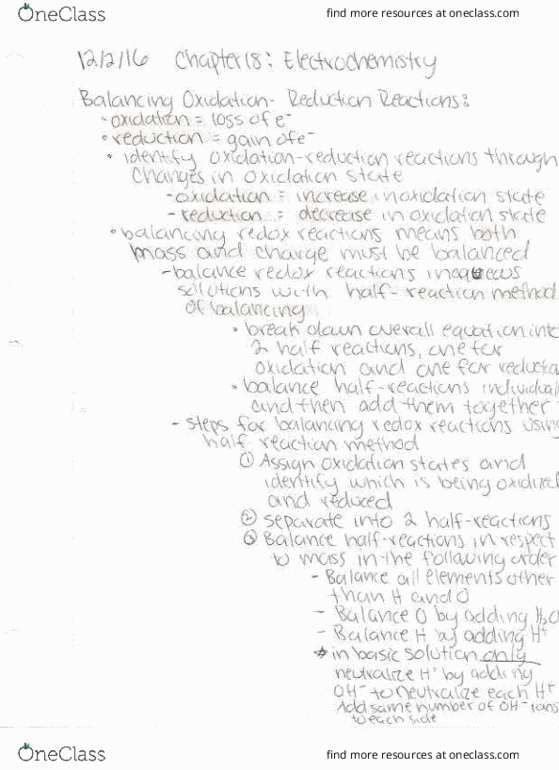 OneClass find more resources at oneclass.com
12/2/16 Chapter 18: Electrochemistry
Balancing Oxidation- Reduction Reactions:
• oxidation = loss of e⁻
• reduction = gain of e⁻
• identify oxidation-reduction reactions through
changes in oxidation state
- oxidation = increase in oxidation state
- reduction = decrease in oxidation state
• balancing redox reactions means both
mass and charge must be balanced
- balance redox reactions in aqueous
solutions with half-reaction method
of balancing
• break down overall equation into
2 half reactions, one for
oxidation and one for reductio
• balance half-reactions individual
and then add them together
- steps for balancing redox reactions using
half reaction method
① Assign oxidation states and
identify which is being oxidized
and reduced
② separate into 2 half-reactions
③ Balance half-reactions in respect
to mass in the following order
- Balance all elements other
than H and O
- Balance O by adding H₂O
- Balance H by adding H⁺
* in basic solution only
neutralize H⁺ by adding
OH⁻ to neutralize each H⁺
Add same number of OH⁻ ions
to each side
OneClass find more resources at oneclass.com